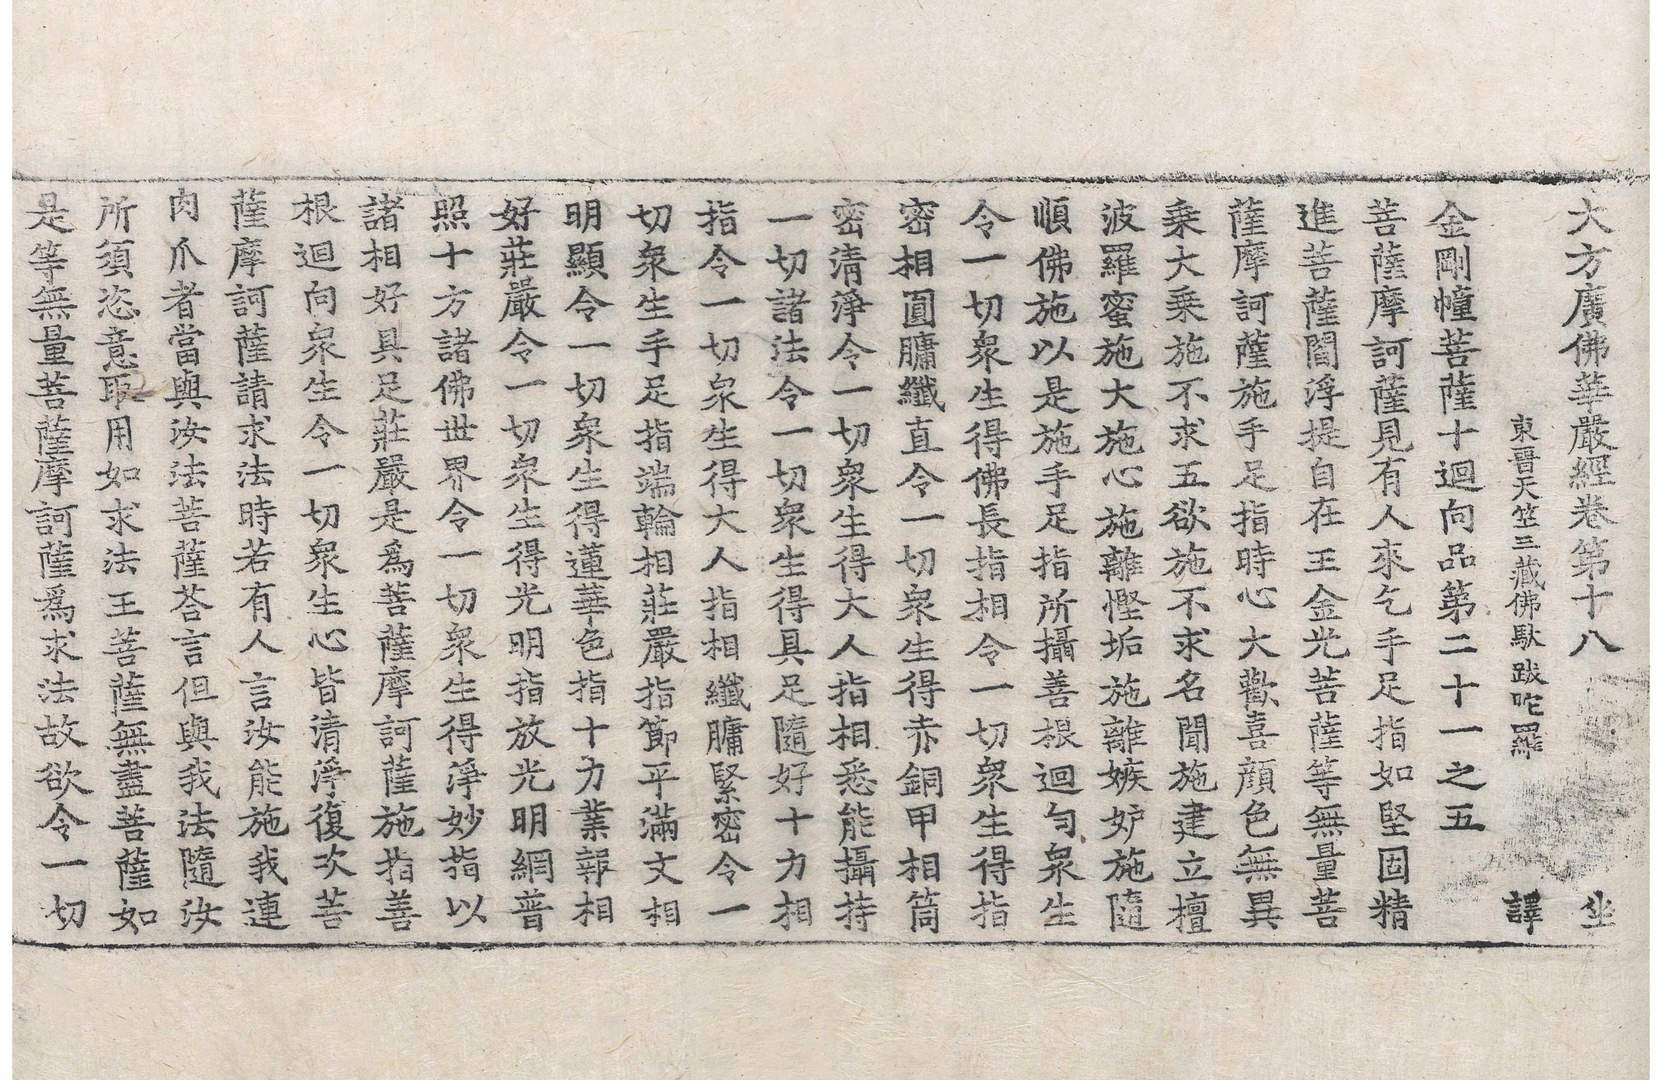 大方廣佛華嚴經卷第十八 坐
東晉天竺三藏佛馱跋陀羅 譯
金剛幢菩薩十迴向品第二十一之五
菩薩摩訶薩見有人來乞手足指如堅固精
進菩薩閻浮提自在王金光菩薩等無量菩
薩摩訶薩施手足指時心大歡喜顏色無異
乗大乗施不求五欲施不求名聞施建立檀
波羅蜜施大施心施離慳垢施離嫉妒施隨
順佛施以是施手足指所攝善根迴向衆生
令一切衆生得佛長指相令一切衆生得指
密相圓𦟛纖直令一切衆生得赤銅甲相筒
密清淨令一切衆生得大人指相悉能攝持
一切諸法令一切衆生得具足隨好十力相
指令一切衆生得大人指相纖𦟛緊密令一
切衆生手足指端輪相莊嚴指節平滿文相
明顯令一切衆生得蓮華色指十力業報相
好莊嚴令一切衆生得光明指放光明網普
照十方諸佛世界令一切衆生得淨妙指以
諸相好具足莊嚴是爲菩薩摩訶薩施指善
根迴向衆生令一切衆生心皆清淨復次菩
薩摩訶薩請求法時若有人言汝能施我連
肉爪者當與汝法菩薩荅言但與我法隨汝
所須恣意取用如求法王菩薩無盡菩薩如
是等無量菩薩摩訶薩爲求法故欲令一切